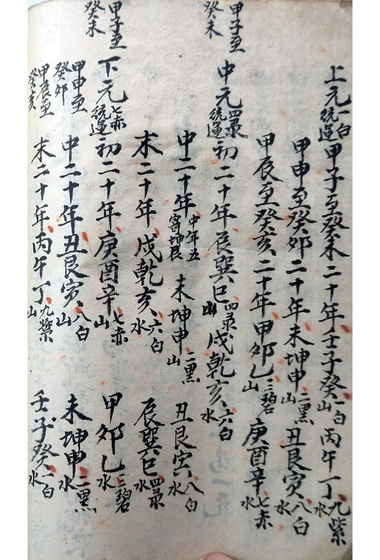 上元一白統運甲子至癸未二十年壬子癸山一白丙午丁水九紫
甲申至癸卯二十年未坤申山二黑丑艮寅水八白
甲辰至癸亥二十年甲卯乙山三碧庚酉辛水七赤
甲子至癸未
中元四录統運初二十年辰巽巳山四录戊乾亥水六白
中二十年中年五寄坤艮未坤申山二黑丑艮寅水八白
末二十年戊乾亥山六白辰巽巳水四录
甲子至癸未
下元七赤統運初二十年庚酉辛山七赤甲卯乙水三碧
甲申至癸卯
中二十年丑艮寅山八白未坤申水二黑
甲辰至癸亥
末二十年丙午丁山九紫壬子癸水一白